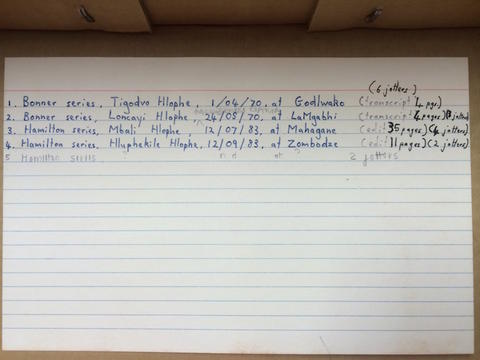 (6 jotters)
1. Bonner series, Tigodvo Hlophe, 1/04/70, at Godlwako (transcript 14 pgs.)
2. Bonner series, Loncayi Hlophe, 24/05/70, at LaMgabhi (transcript 4 pages) jotters)
3. Hamilton series, Mbali Hlophe, 12/07/83, at Mahagane (edit 35 pages) (4 jotters)
4. Hamilton series, Hluphekile Hlophe, 12/09/83, at Zombodze (edit 11 pages) (2 jotters)
5 Hamilton series n d at ? 2 jotters